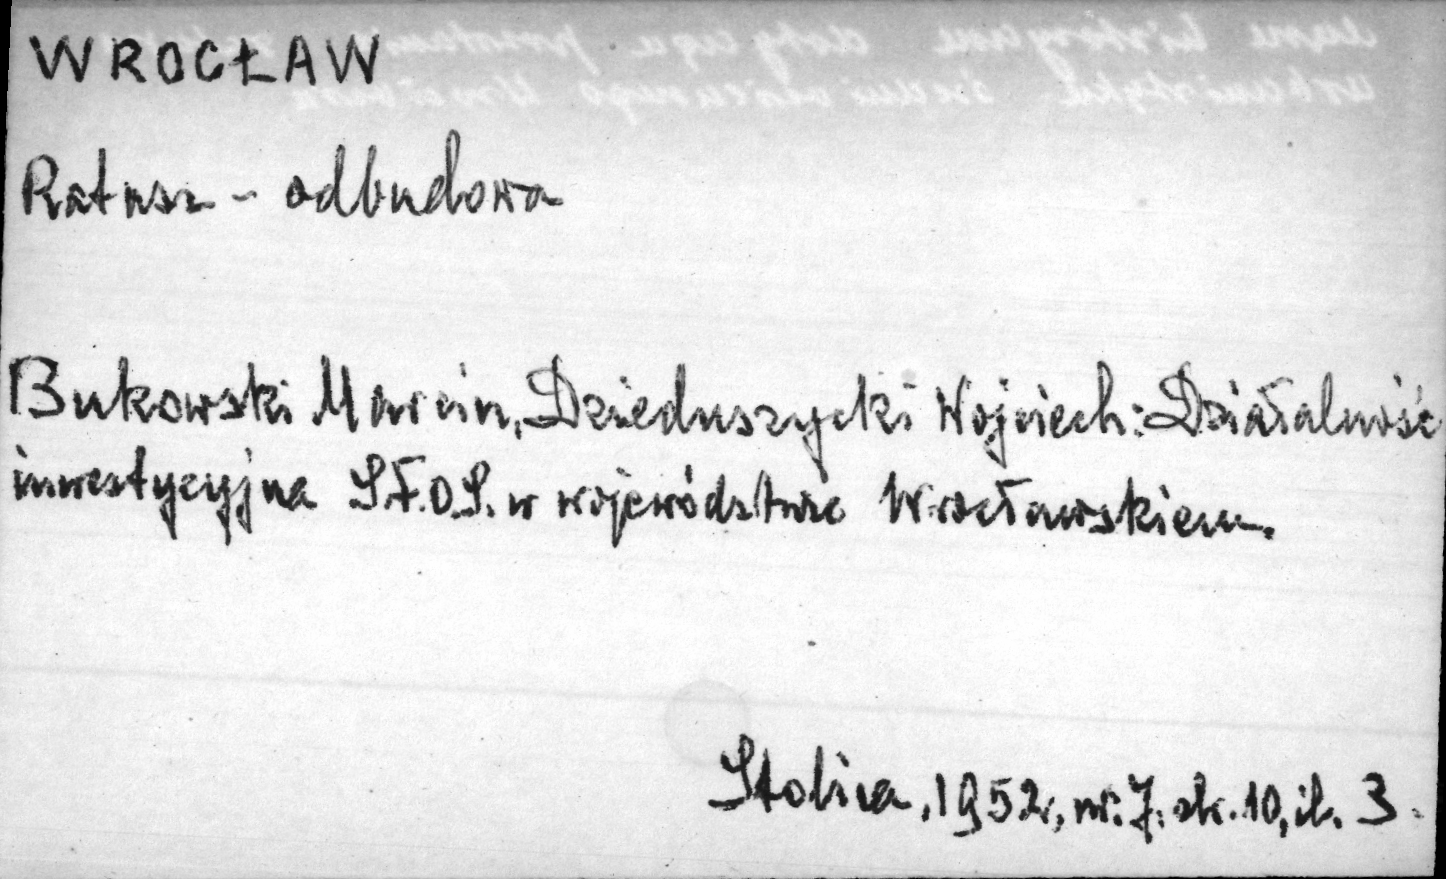 WROCŁAW
Ratusz - odbudowa
Bukowski Marcin, Dzieduszycki Wojciech: Działalność
inwestycyjna S.F.O.S. w województwie Wrocławskiem.
Stolica, 1952, nr. 7. str. 10, il. 3.